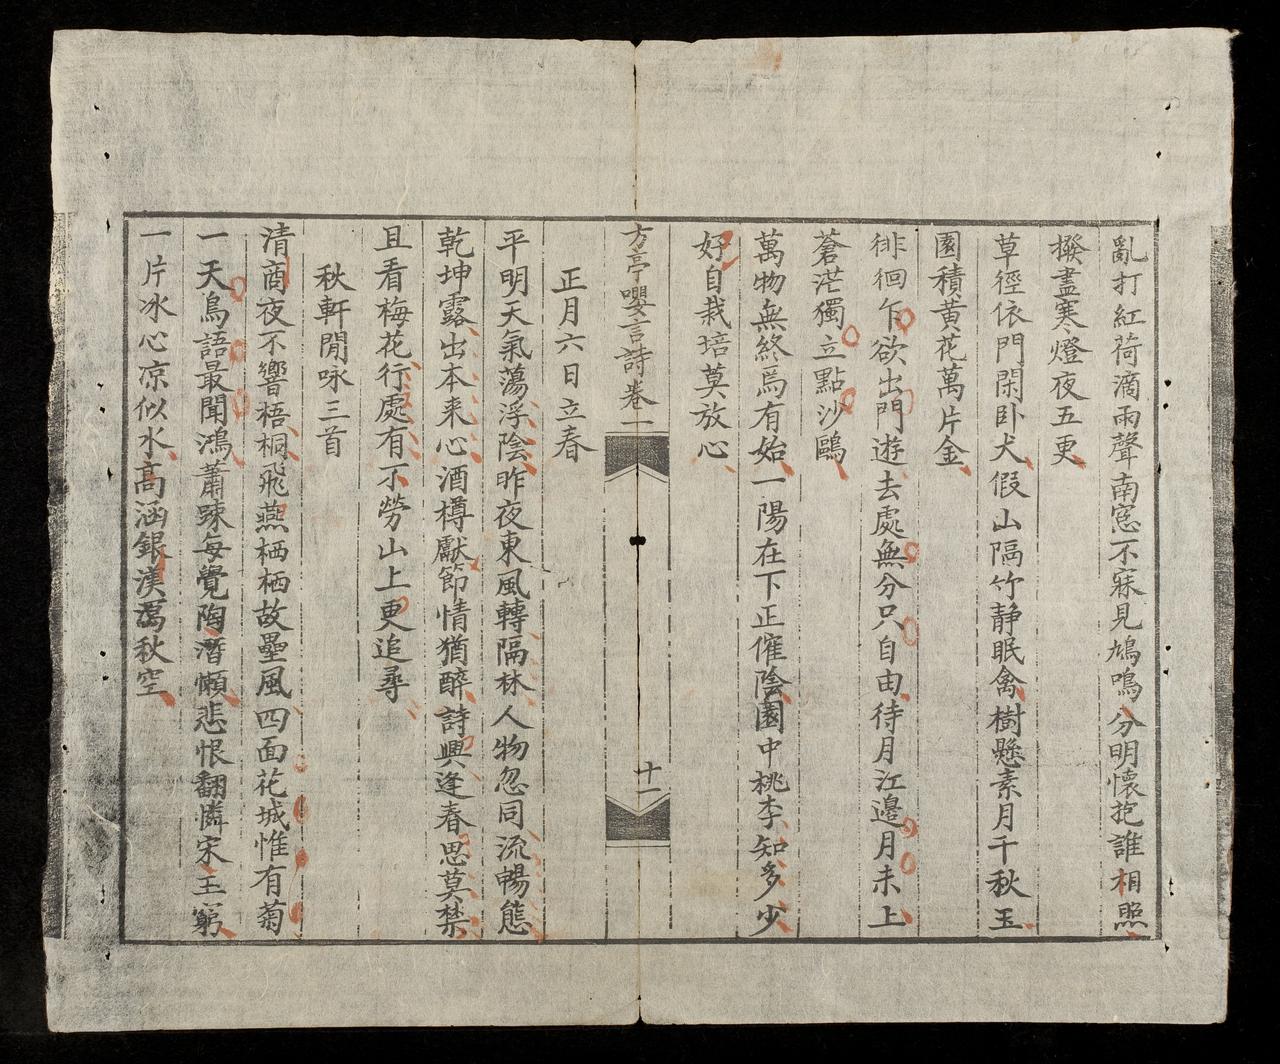 亂打紅荷滴雨聲南窓不寐見鳩鳴分明懷抱誰相照
撥盡寒燈夜五更
草徑依門閑卧犬假山隔竹静眠禽樹懸素月千秋玉
園積黄花萬片金
徘徊乍欲出門遊去處無分只自由待月江邊月未上
蒼茫獨立點沙鷗
萬物無終焉有始一陽在下正催陰園中桃李知多少
好自栽培莫放心
方亭嚶言詩卷一
十一
正月六日立春
平明天氣蕩浮陰昨夜東風轉隔林人物忽同流暢態
乾坤露出本来心酒樽獻節情猶醉詩興逢春思莫禁
且看梅花行處有不勞山上更追尋
秋軒閒咏三首
清商夜不響梧桐飛燕栖栖故壘風四面花城惟有菊
一天鳥語最聞鴻蕭踈每覺陶潛懶悲恨翻憐宋玉窮
一片冰心凉似水高涵銀漢萬秋空